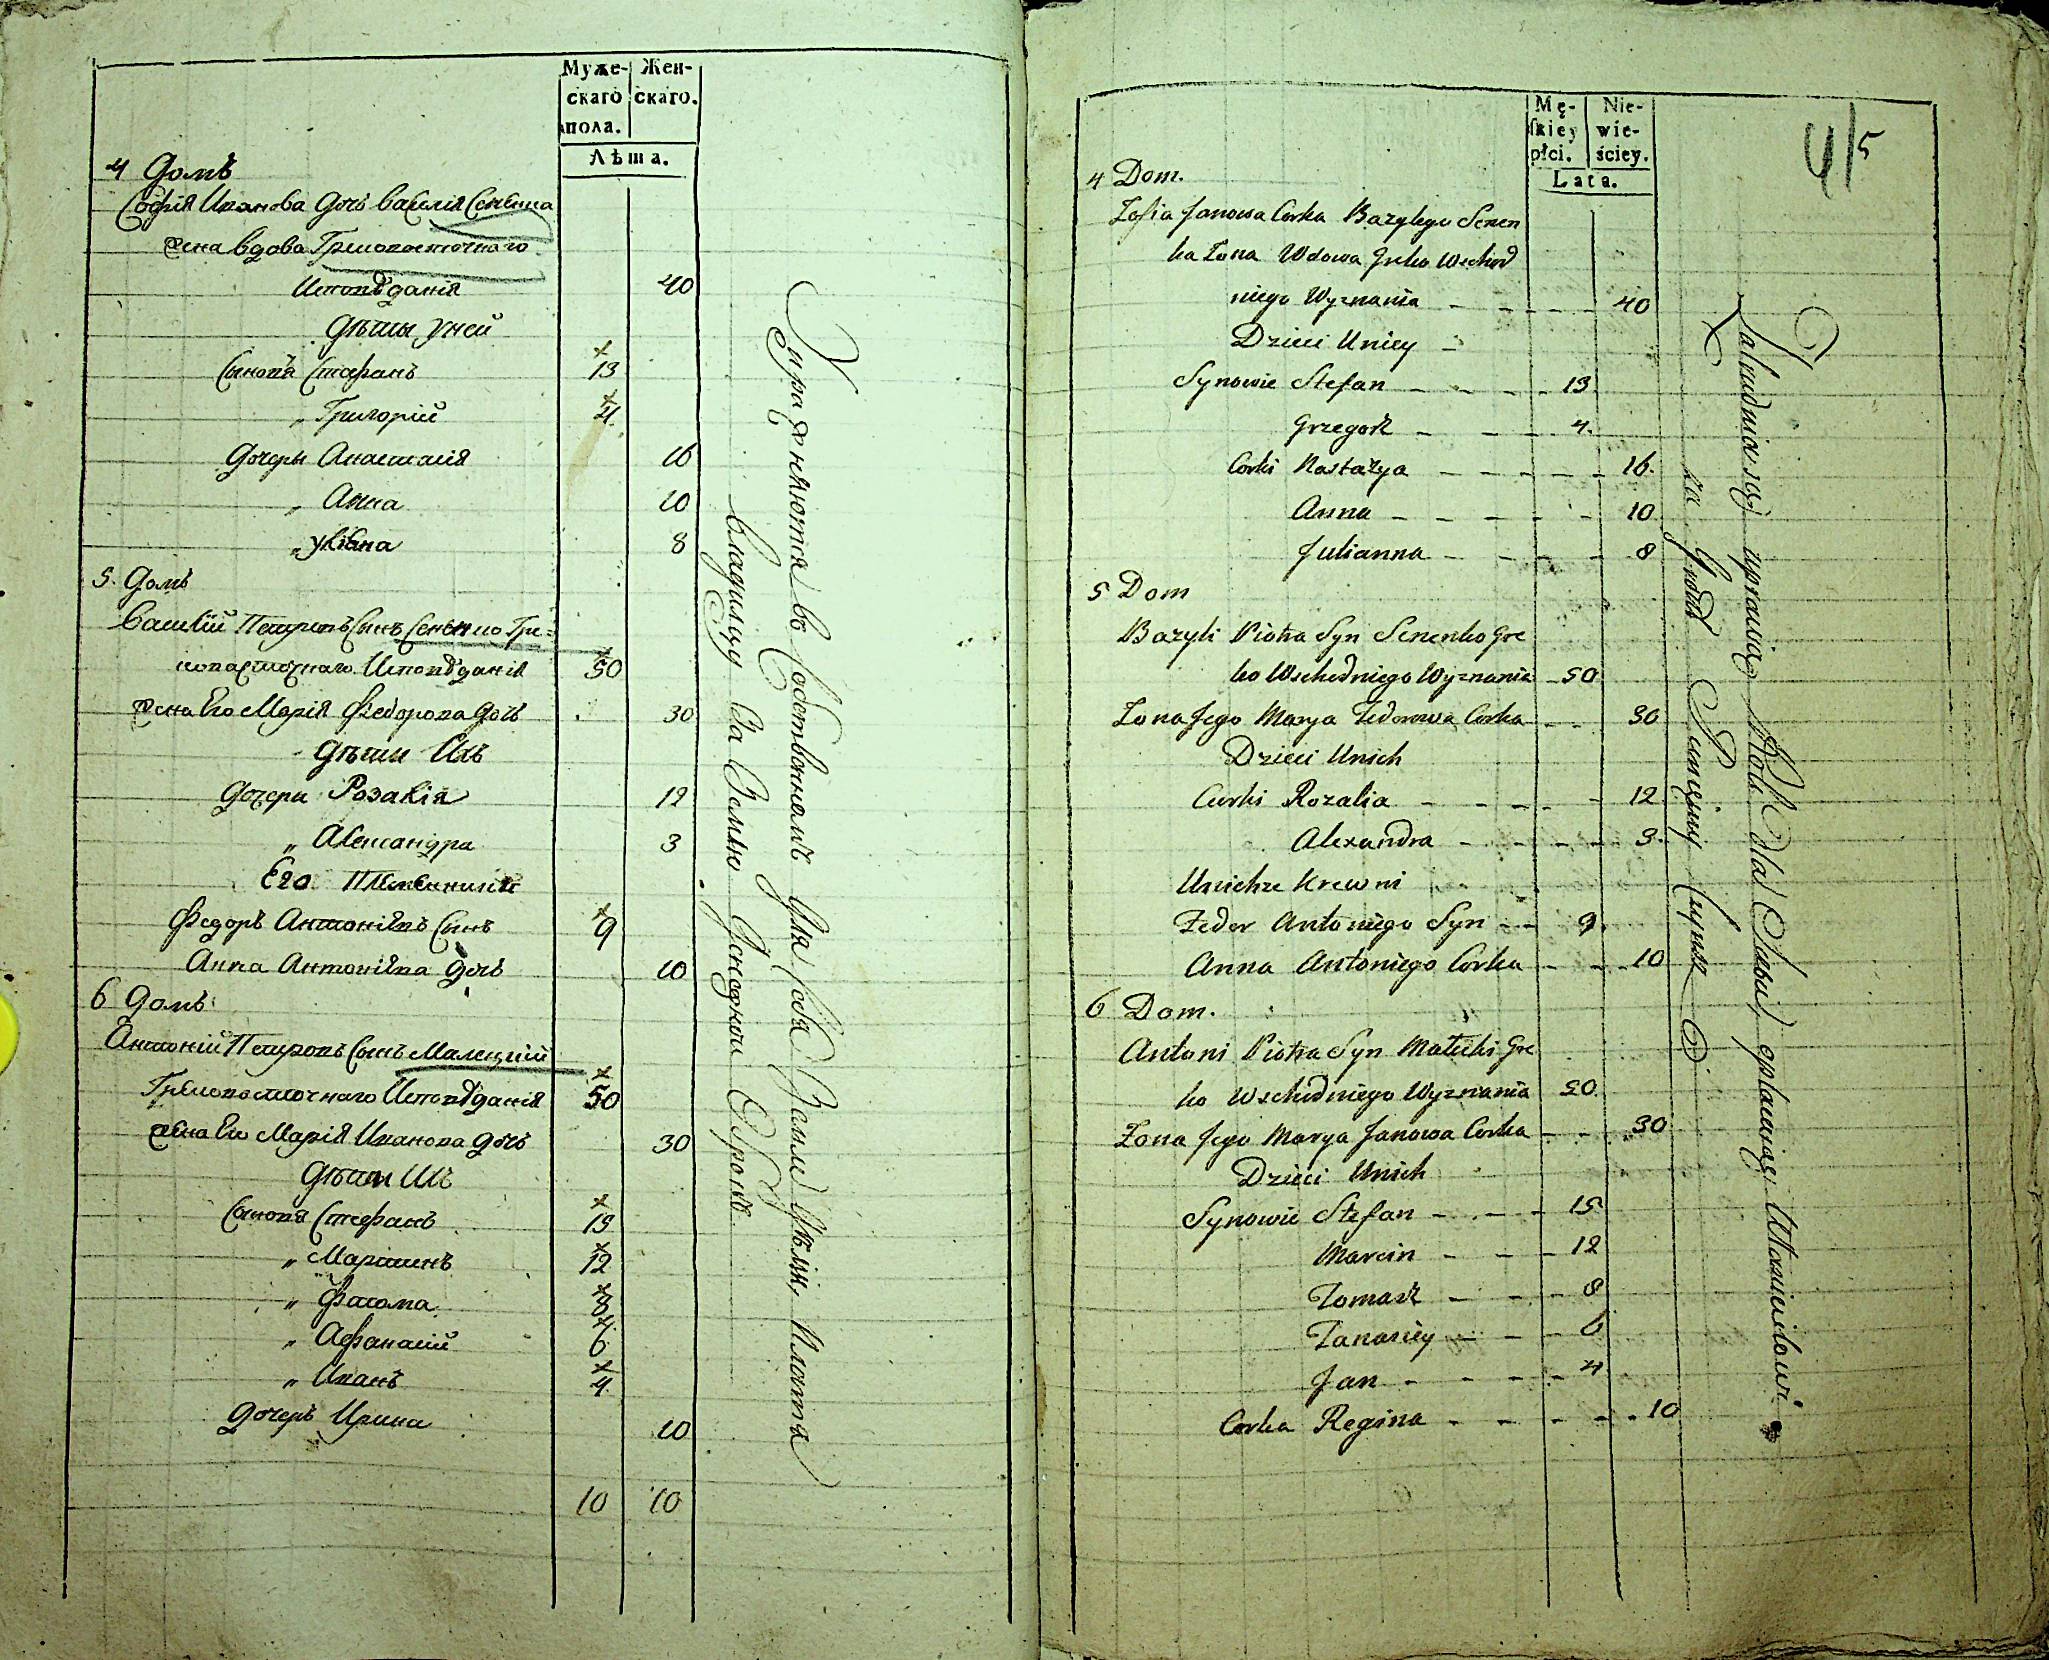 Муже-
скаго
пола.
Жен-
скаго.
Лѣта.
4 Домъ
Софія Иванова Дочь Василія Сененка
жена вдова Грековосточного
Исповѣданія 40
Дѣти у ней
Сыновя Стефанъ 13
„ Григорій 4
Дочери Анастасія 16
„ Анна 10
„ Уліана 8
5. Домъ
Василій Петровъ Сынъ Сененко Гре=
ковосточнаго Исповѣданія 50
жена Его Марія Федорова Дочь 30
Дѣти Ихъ
Дочери Розалія 12
„ Александра 3
Его Племенники
Федоръ Антоніевъ Сынъ 9
Анна Антоніева Дочь 10
6 Домъ
Антоній Петровъ Сынъ Малецкій
Грековосточнаго Исповѣданія 50
жена Его Марія Иванова Дочь 30
Дѣти Ихъ
Сыновя Стефанъ 15
„ Мартинъ 12
„ Фатома 8
„ Афанасій 6
„ Иванъ 4
Дочерь Ирина 10
10 10
Упражняются въ собственномъ для себя Земледѣліи, Платя
владильцу За Землю Денежной Оброкъ
4/5
Mę-
skiey
płci.
Nie-
wie-
ściey.
Lata.
4 Dom.
Zofia Janowa Corka Bazylego Senen
ka Żona Wdowa Greko Wschod
niego Wyznania 40
Dzieci Uniey
Synowie Stefan 13
Grzegorz 4.
Corki Nastazya 16.
Anna 10
Julianna 8
5 Dom
Bazyli Piotra Syn Senenko Gre
ko Wschodniego Wyznania 50
Żona Jego Marya Fedorowa Corka 30
Dzieci Unich
Corki Rozalia 12
Alexandra 3.
Unichze Krewni
Fedor Antoniego Syn 9.
Anna Antoniego Corka 10
6 Dom.
Antoni Piotra Syn Malecki Gre
ko Wschodniego Wyznania 50.
Żona Jego Marya Janowa Corka 30
Dzieci Unich
Synowie Stefan 15
Marcin 12
Tomasz 8
Tanasiey 6
Jan 4
Corka Regina 10
Zatrudniaią się uprawią Roli dla Siebie, opłacaiąc Włascicielowi
za Grunt Pieniężny Czynsz